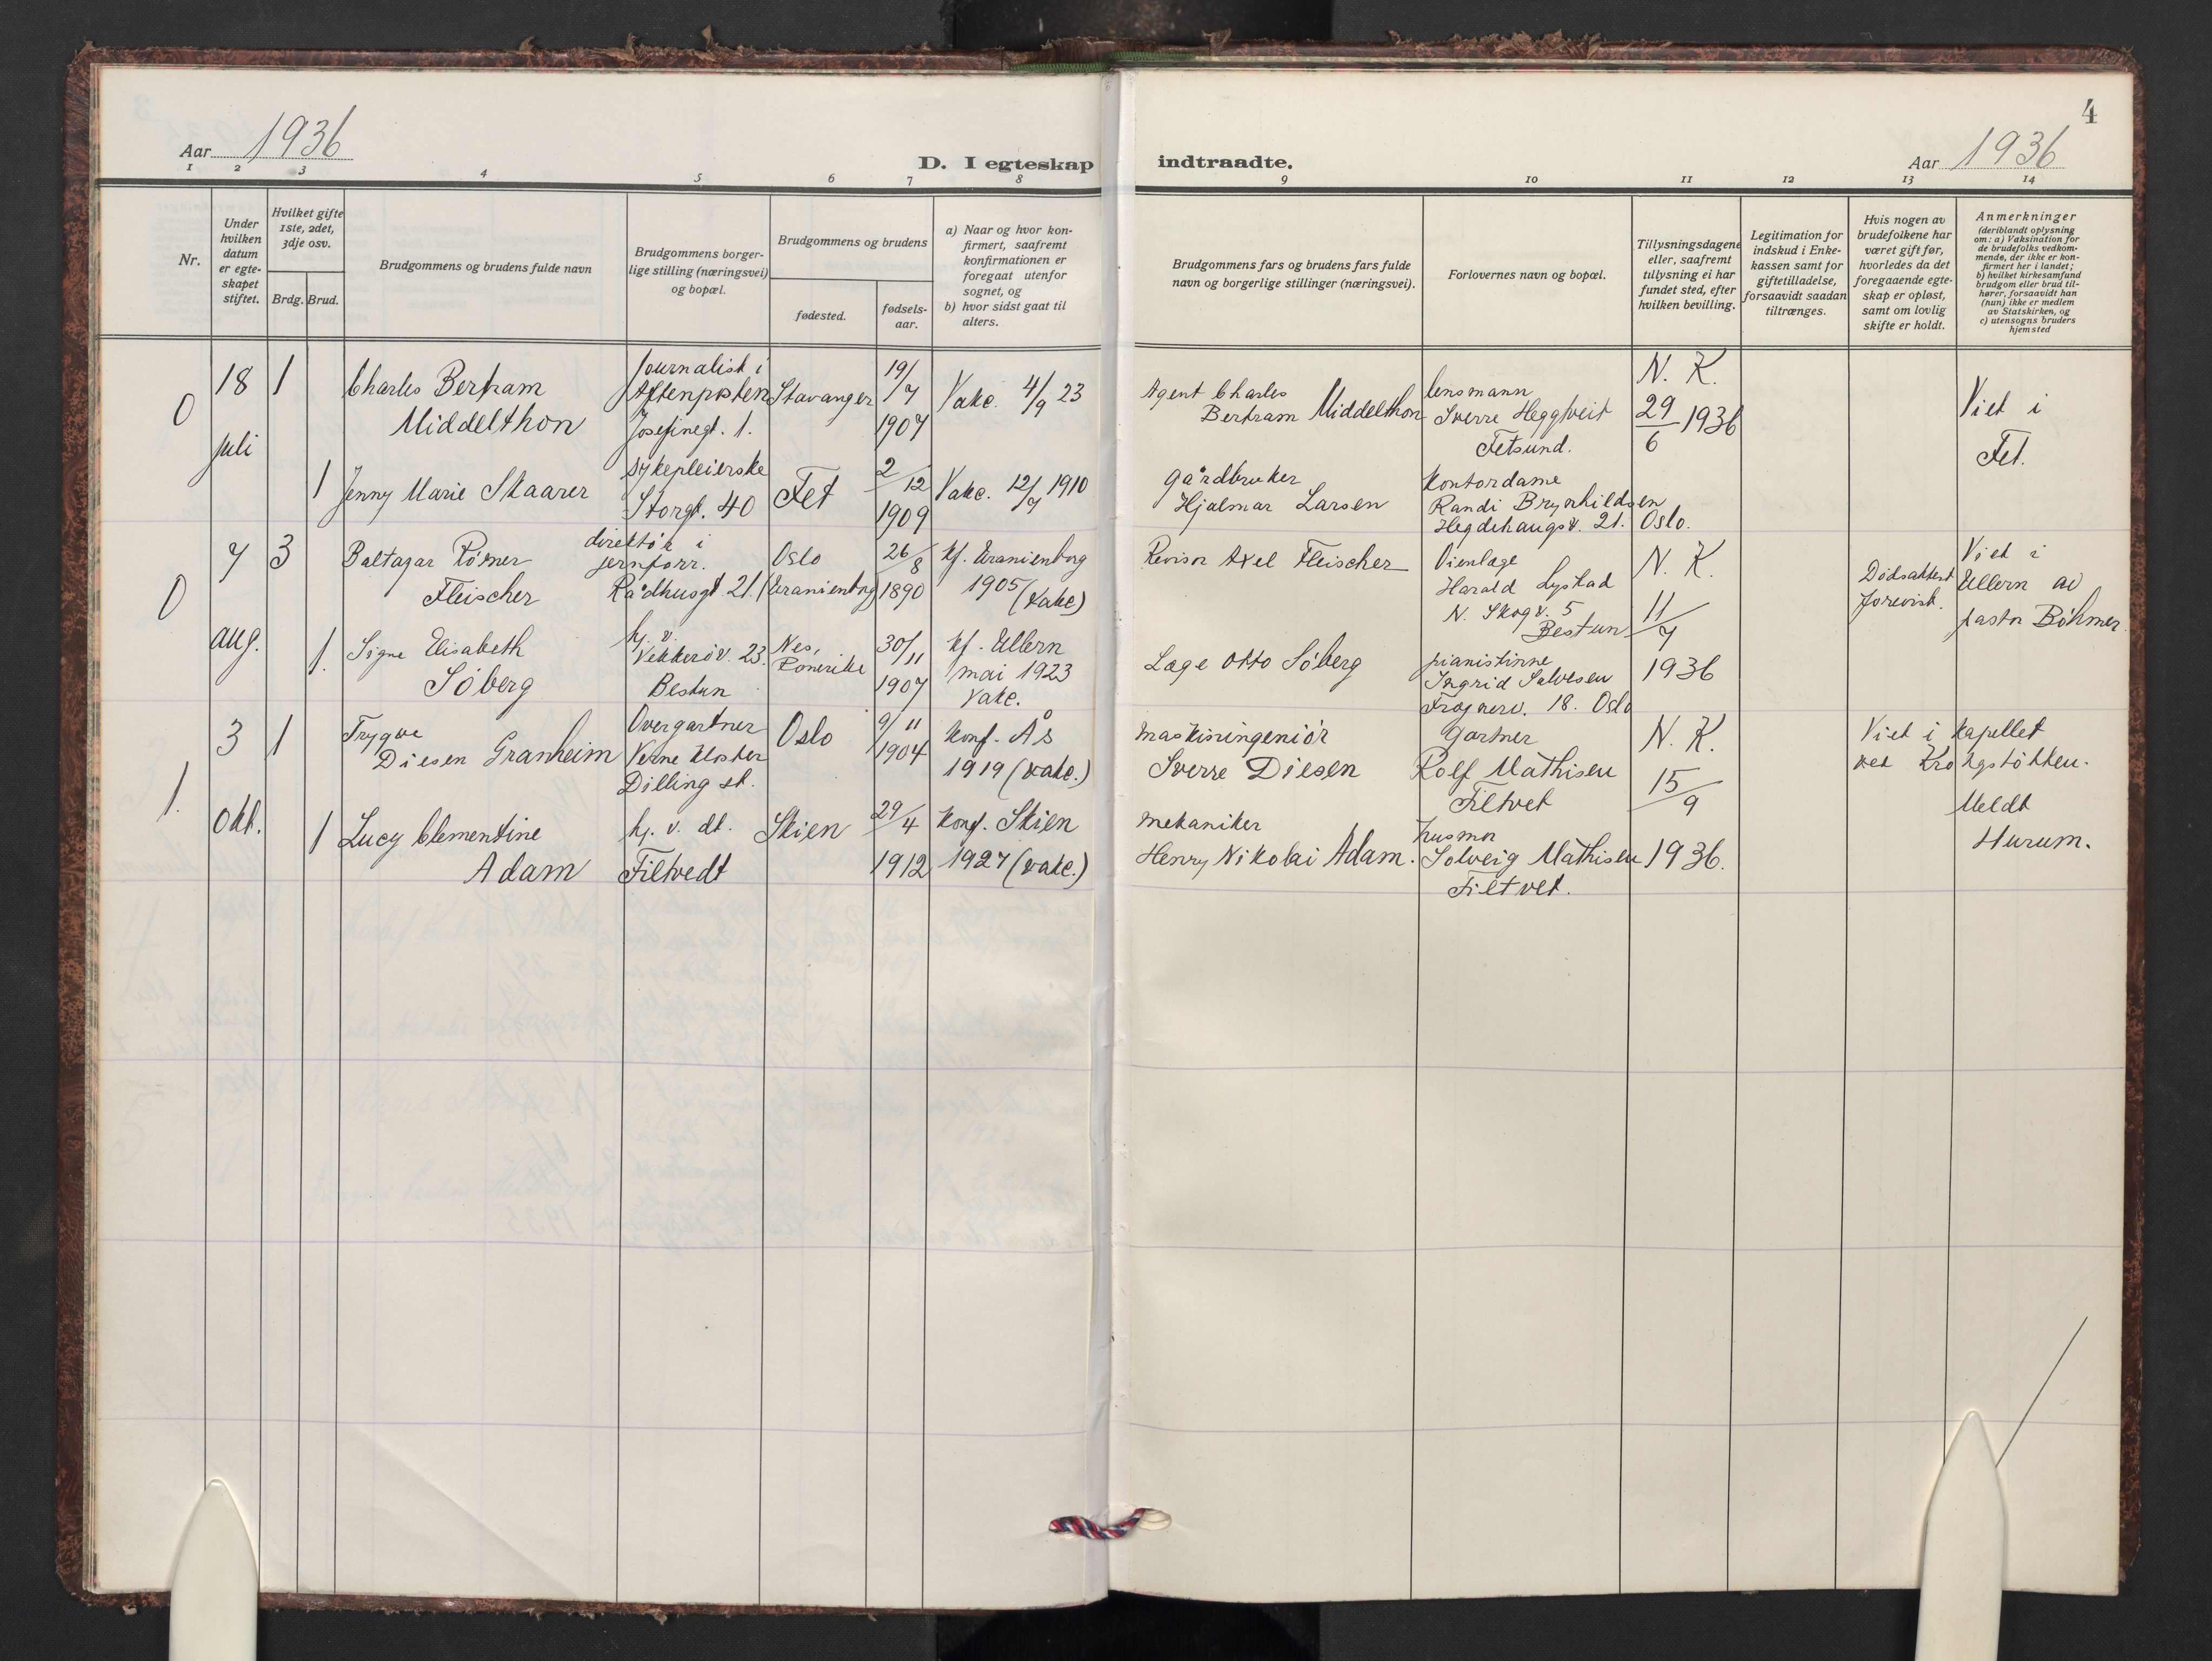 4
Aar 1936
D. I egteskap indtraadte.
Aar 1936
1 2 3 4 5 6 7 8 9 10 11 12 13 14
Nr.
Under
hvilken
datum
er egte-
skapet
stiftet.
Hvilket gifte
1ste, 2det,
3dje osv.
Brdg. Brud.
Brudgommens og brudens fulde navn
Brudgommens borger-
lige stilling (næringsvei)
og bopæl.
Brudgommens og brudens
fødested.
fødsels-
aar.
a) Naar og hvor kon-
firmert, saafremt
konfirmationen er
foregaat utenfor
sognet, og
b) hvor sidst gaat til
alters.
Brudgommens fars og brudens fars fulde
navn og borgerlige stillinger (næringsvei).
Forlovernes navn og bopæl.
Tillysningsdagene
eller, saafremt
tillysning ei har
fundet sted, efter
hvilken bevilling.
Legitimation for
indskud i Enke-
kassen samt for
giftetilladelse,
forsaavidt saadan
tiltrænges.
Hvis nogen av
brudefolkene har
været gift før,
hvorledes da det
foregaaende egte-
skap er opløst,
samt om lovlig
skifte er holdt.
Anmerkninger
(deriblandt oplysning
om: a) Vaksination for
de brudefolks vedkom-
mende, der ikke er kon-
firmert her i landet;
b) hvilket kirkesamfund
brudgom eller brud til-
hører, forsaavidt han
(hun) ikke er medlem
av Statskirken, og
c) utensogns bruders
hjemsted
0
18
juli
1
Charles Bertram
Middelthon
Journalist i
Aftenposten
Josefinegt. 1.
Stavanger
19/7
1907
Vakc. 4/9 23
Agent Charles
Bertram Middelthon
lensmann
Sverre Heggtveit
Fetsund.
N. K.
29/6 1936
Viet i
Fet.
1
Jenny Marie Skaarer
Sykepleierske
Storgt. 40
Fet
2/12
1909
Vakc. 12/7 1910
gårdbruker
Hjalmar Larsen
Kontordame
Randi Brynhildsen
Hegdehaugsv. 21. Oslo.
0
7
aug.
3
Baltazar Römer
Fleischer
direktör i
jernforr.
Rådhusgt. 21.
Oslo
(Uranienborg)
26/8
1890
kf. Uranienborg
1905 (vakc)
Revisor Axel Fleischer
Öienlæge
Harald Lystad
N. Skogv. 5
Bestun
N. K.
11/7
1936
Dødsattest
forevist.
Viet i
Ullern av
pastor Böhmer.
1.
Signe Elisabeth
Söberg
hj. v.
Vækkeröv. 23.
Bestun
Nes,
Romerike
30/11
1907
kf. Ullern
mai 1923
Vakc.
Læge Otto Söberg
pianistinne
Ingrid Salvesen
Frognerv. 18. Oslo
1.
3
okt.
1
Trygve
Diesen Granheim
Overgartner
Verne Kloster
Dilling st.
Oslo
9/11
1904
Konf. Ås
1919 (vakc.)
maskiningeniör
Sverre Diesen
Gartner
Rolf Mathisen
Filtvet
N. K.
15/9
1936.
Viet i kapellet
ved Krogstøtten.
Meldt
Hurum.
1
Lucy Clementine
Adam
hj. v. dt.
Filtvedt
Skien
29/4
1912
Konf. Skien
1927 (vakc.)
mekaniker
Henry Nikolai Adam.
husmor
Solveig Mathisen
Filtvet.